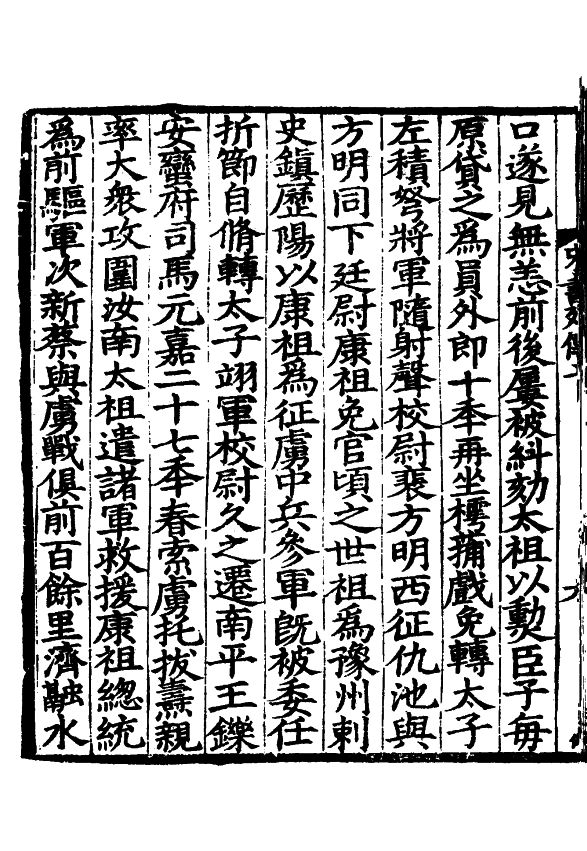 口遂見無恙前後屢被糾劾太祖以勲臣子每
原貸之爲員外郎十年再坐樗蒱戲免轉太子
左積弩將軍隨射聲校尉裴方明西征仇池與
方明同下廷尉康祖免官頃之世祖爲豫州刺
史鎮歷陽以康祖爲征虜中兵參軍旣被委任
折節自脩轉太子翊軍校尉久之遷南平王鑠
安蠻府司馬元嘉二十七年春索虜托拔燾親
率大衆攻圍汝南太祖遣諸軍救援康祖總統
爲前驅軍次新蔡與虜戰俱前百餘里濟融水